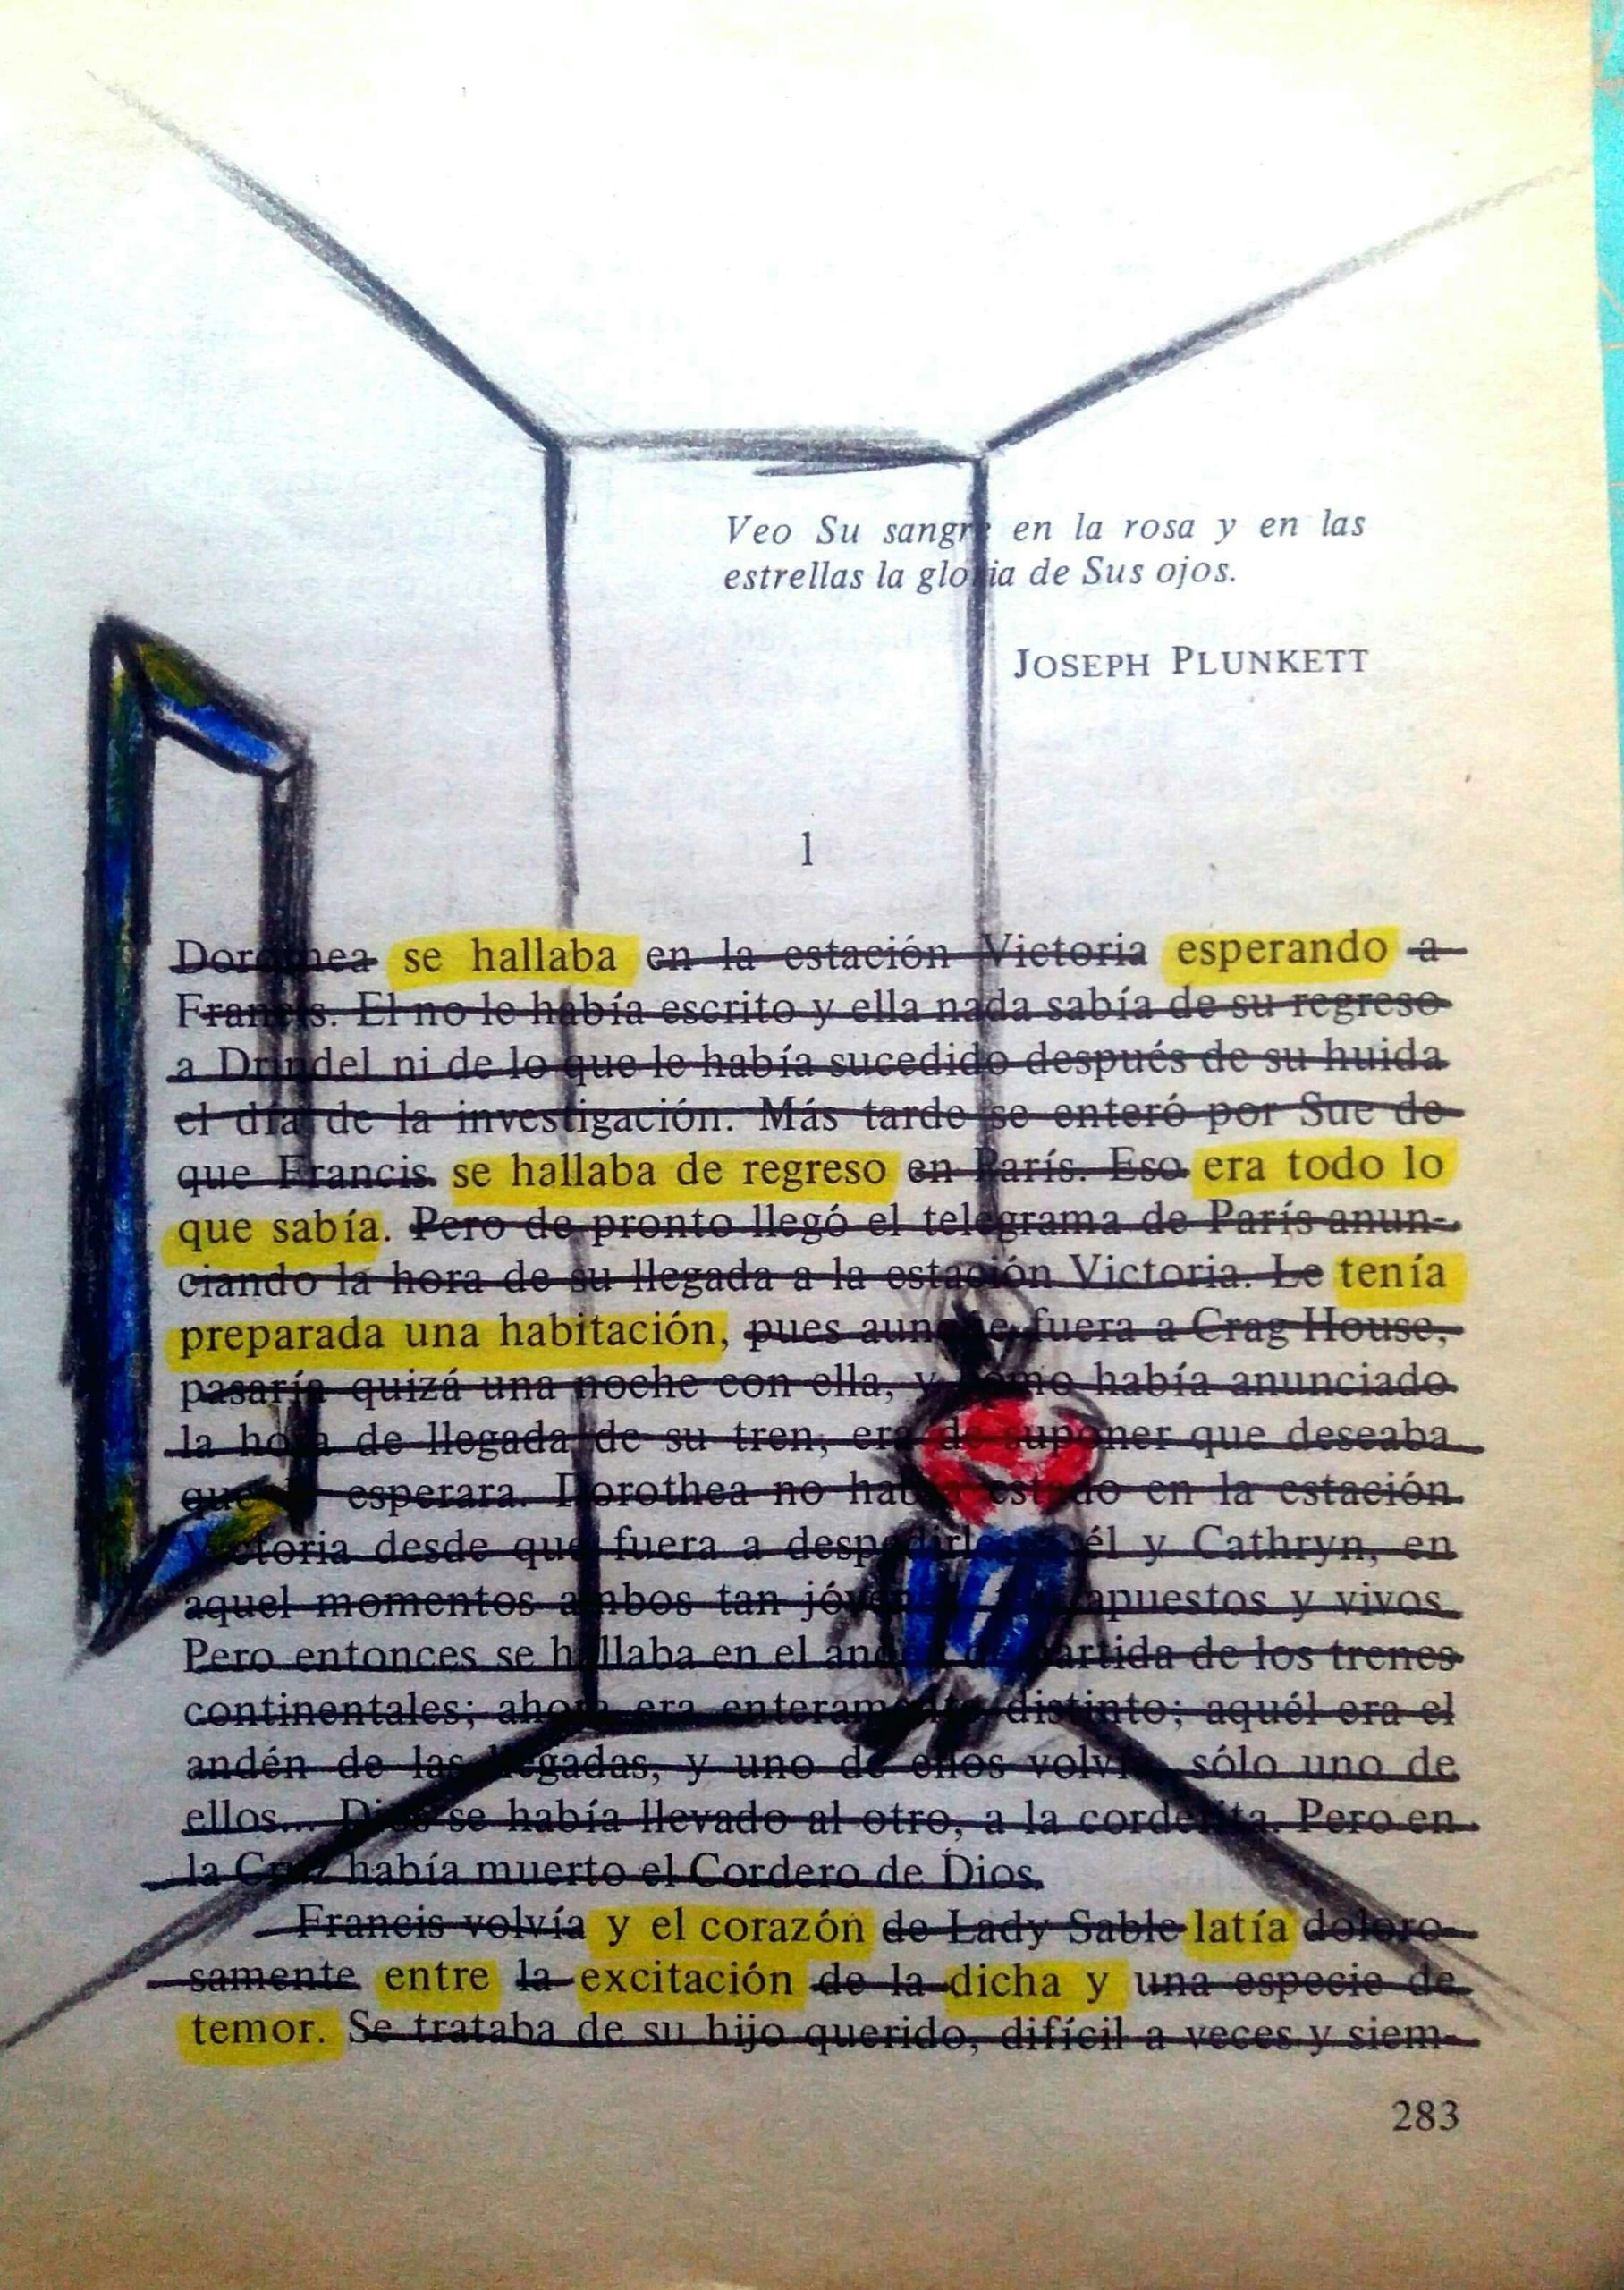 Veo Su sangre en la rosa y en las
estrellas la gloria de Sus ojos.
JOSEPH PLUNKETT
1
Dorothea se hallaba en la estación Victoria esperando a
Francis. El no le había escrito y ella nada sabía de su regreso
a Drindel ni de lo que le había sucedido después de su huida
el día de la investigación. Más tarde se enteró por Sue de
que Francis se hallaba de regreso en París. Eso era todo lo
que sabía. Pero de pronto llegó el telegrama de París anun-
ciando la hora de su llegada a la estación Victoria. Le tenía
preparada una habitación, pues aunque fuera a Crag House,
pasaría quizá una noche con ella, y como había anunciado
la hora de llegada de su tren, era de suponer que deseaba
que esperara. Dorothea no había estado en la estación
Victoria desde que fuera a despedirles él y Cathryn, en
aquel momentos ambos tan jóvenes apuestos y vivos.
Pero entonces se hallaba en el andén de partida de los trenes
continentales; ahora era enteramente distinto; aquél era el
andén de las llegadas, y uno de ellos volvía, sólo uno de
ellos... Dios se había llevado al otro, a la corderita. Pero en
la Cruz había muerto el Cordero de Dios.
Francis volvía y el corazón de Lady Sable latía doloro-
samente entre la excitación de la dicha y una especie de
temor. Se trataba de su hijo querido, difícil a veces y siem-
283